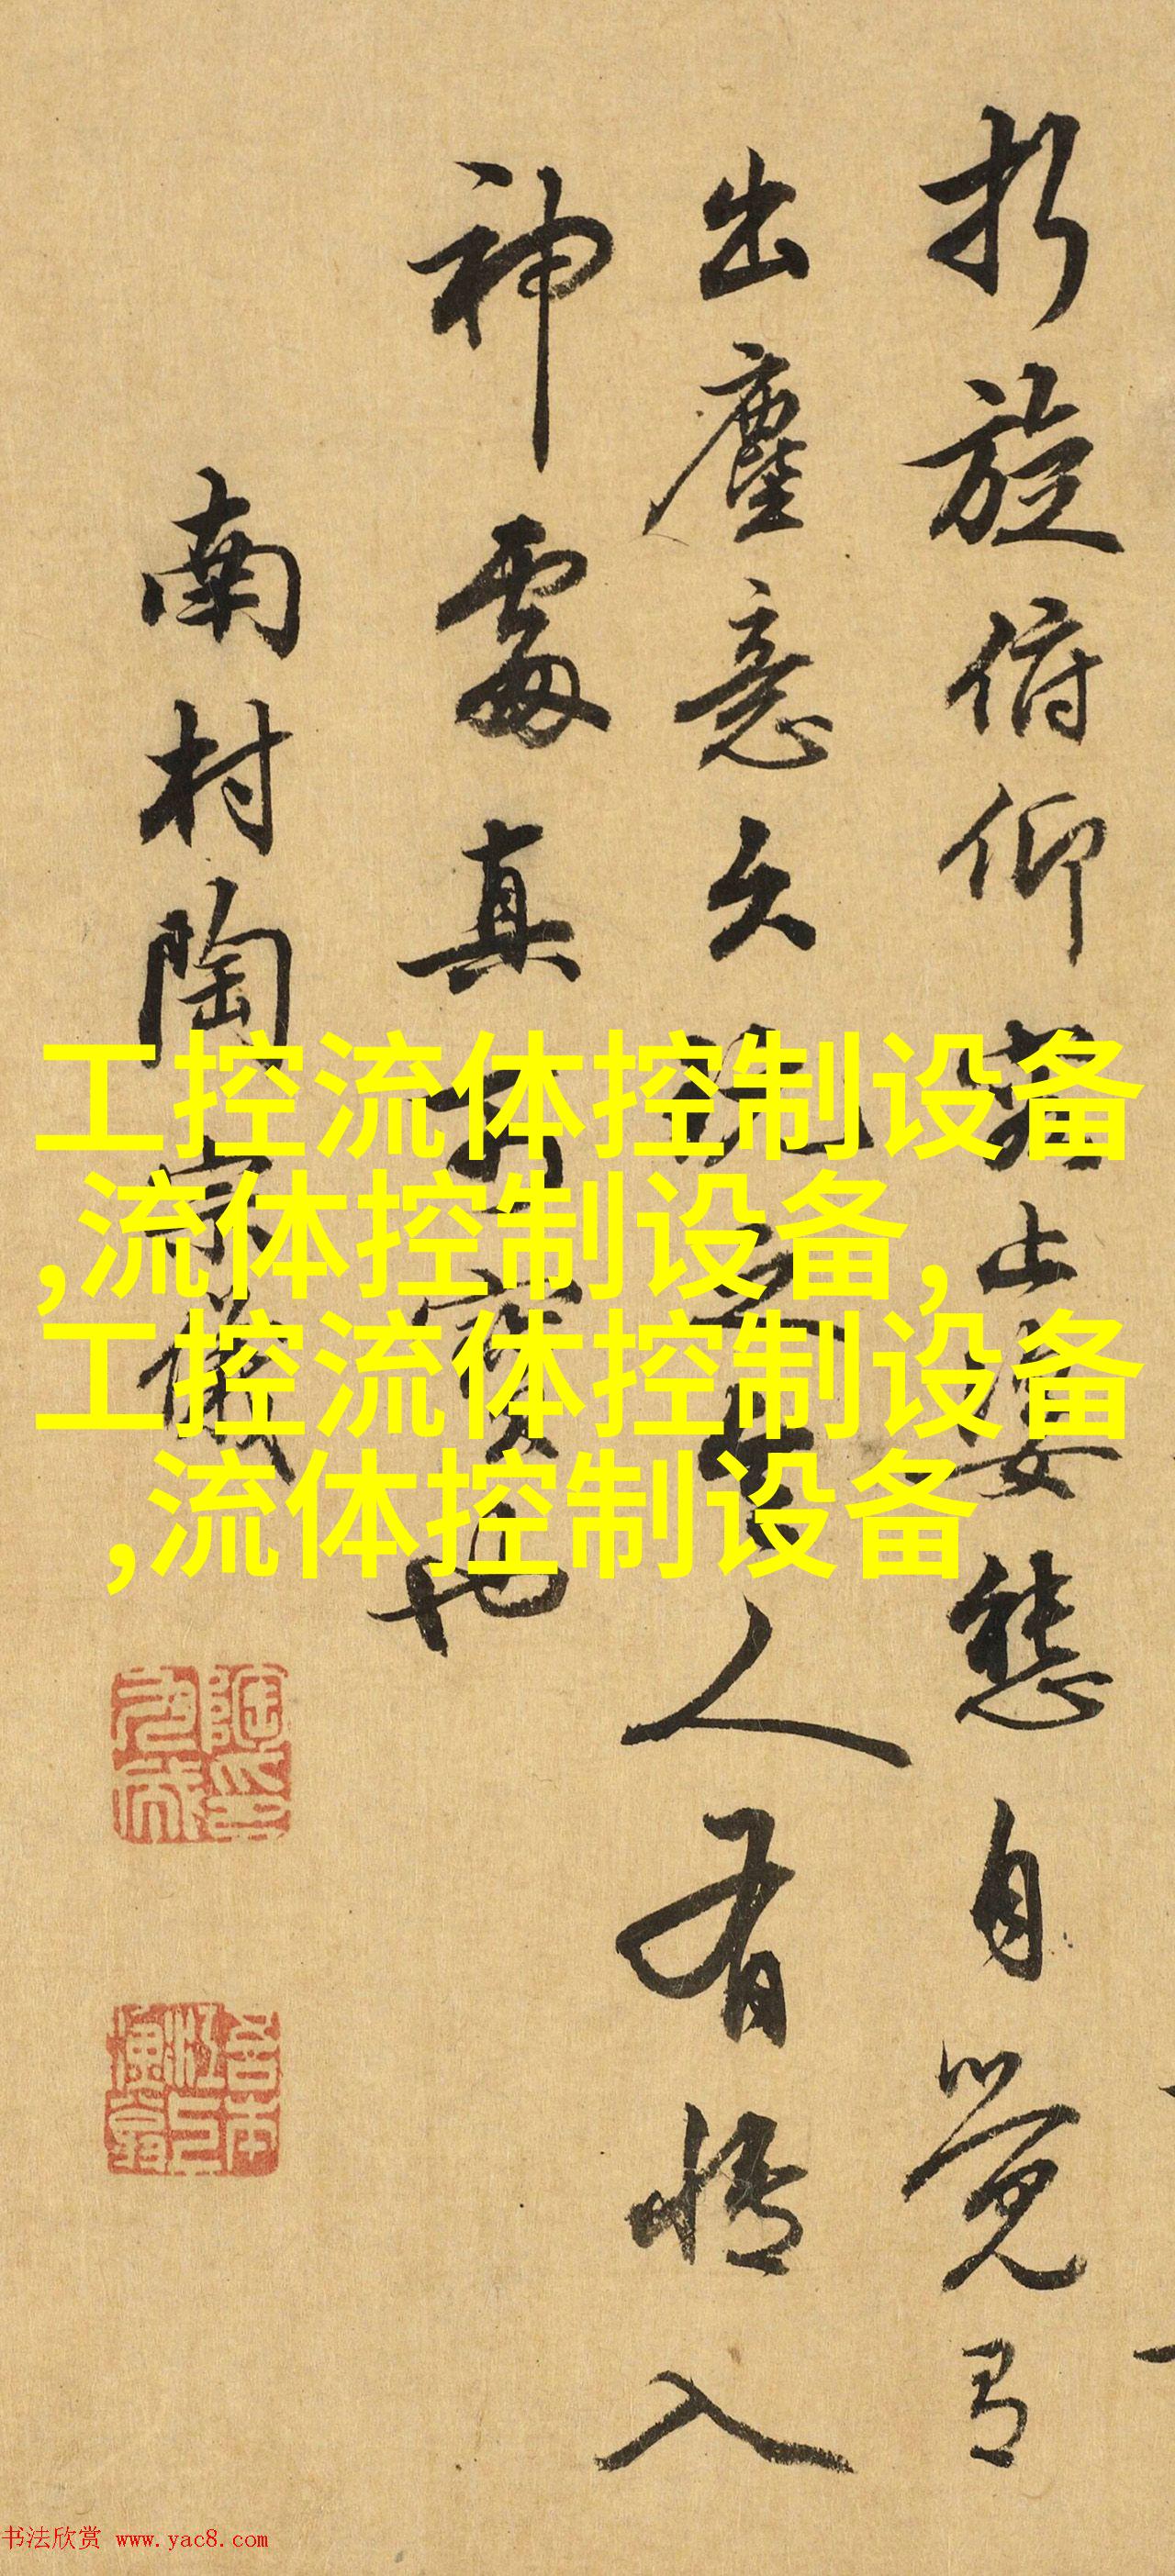 折旋俯仰
止
態自覺有
出塵意久
人有情入
神處真
寶也
南村陶宗儀
工控流体控制设备
,流体控制设备,
工控流体控制设备
,流体控制设备
书法欣赏 www.yac8.com